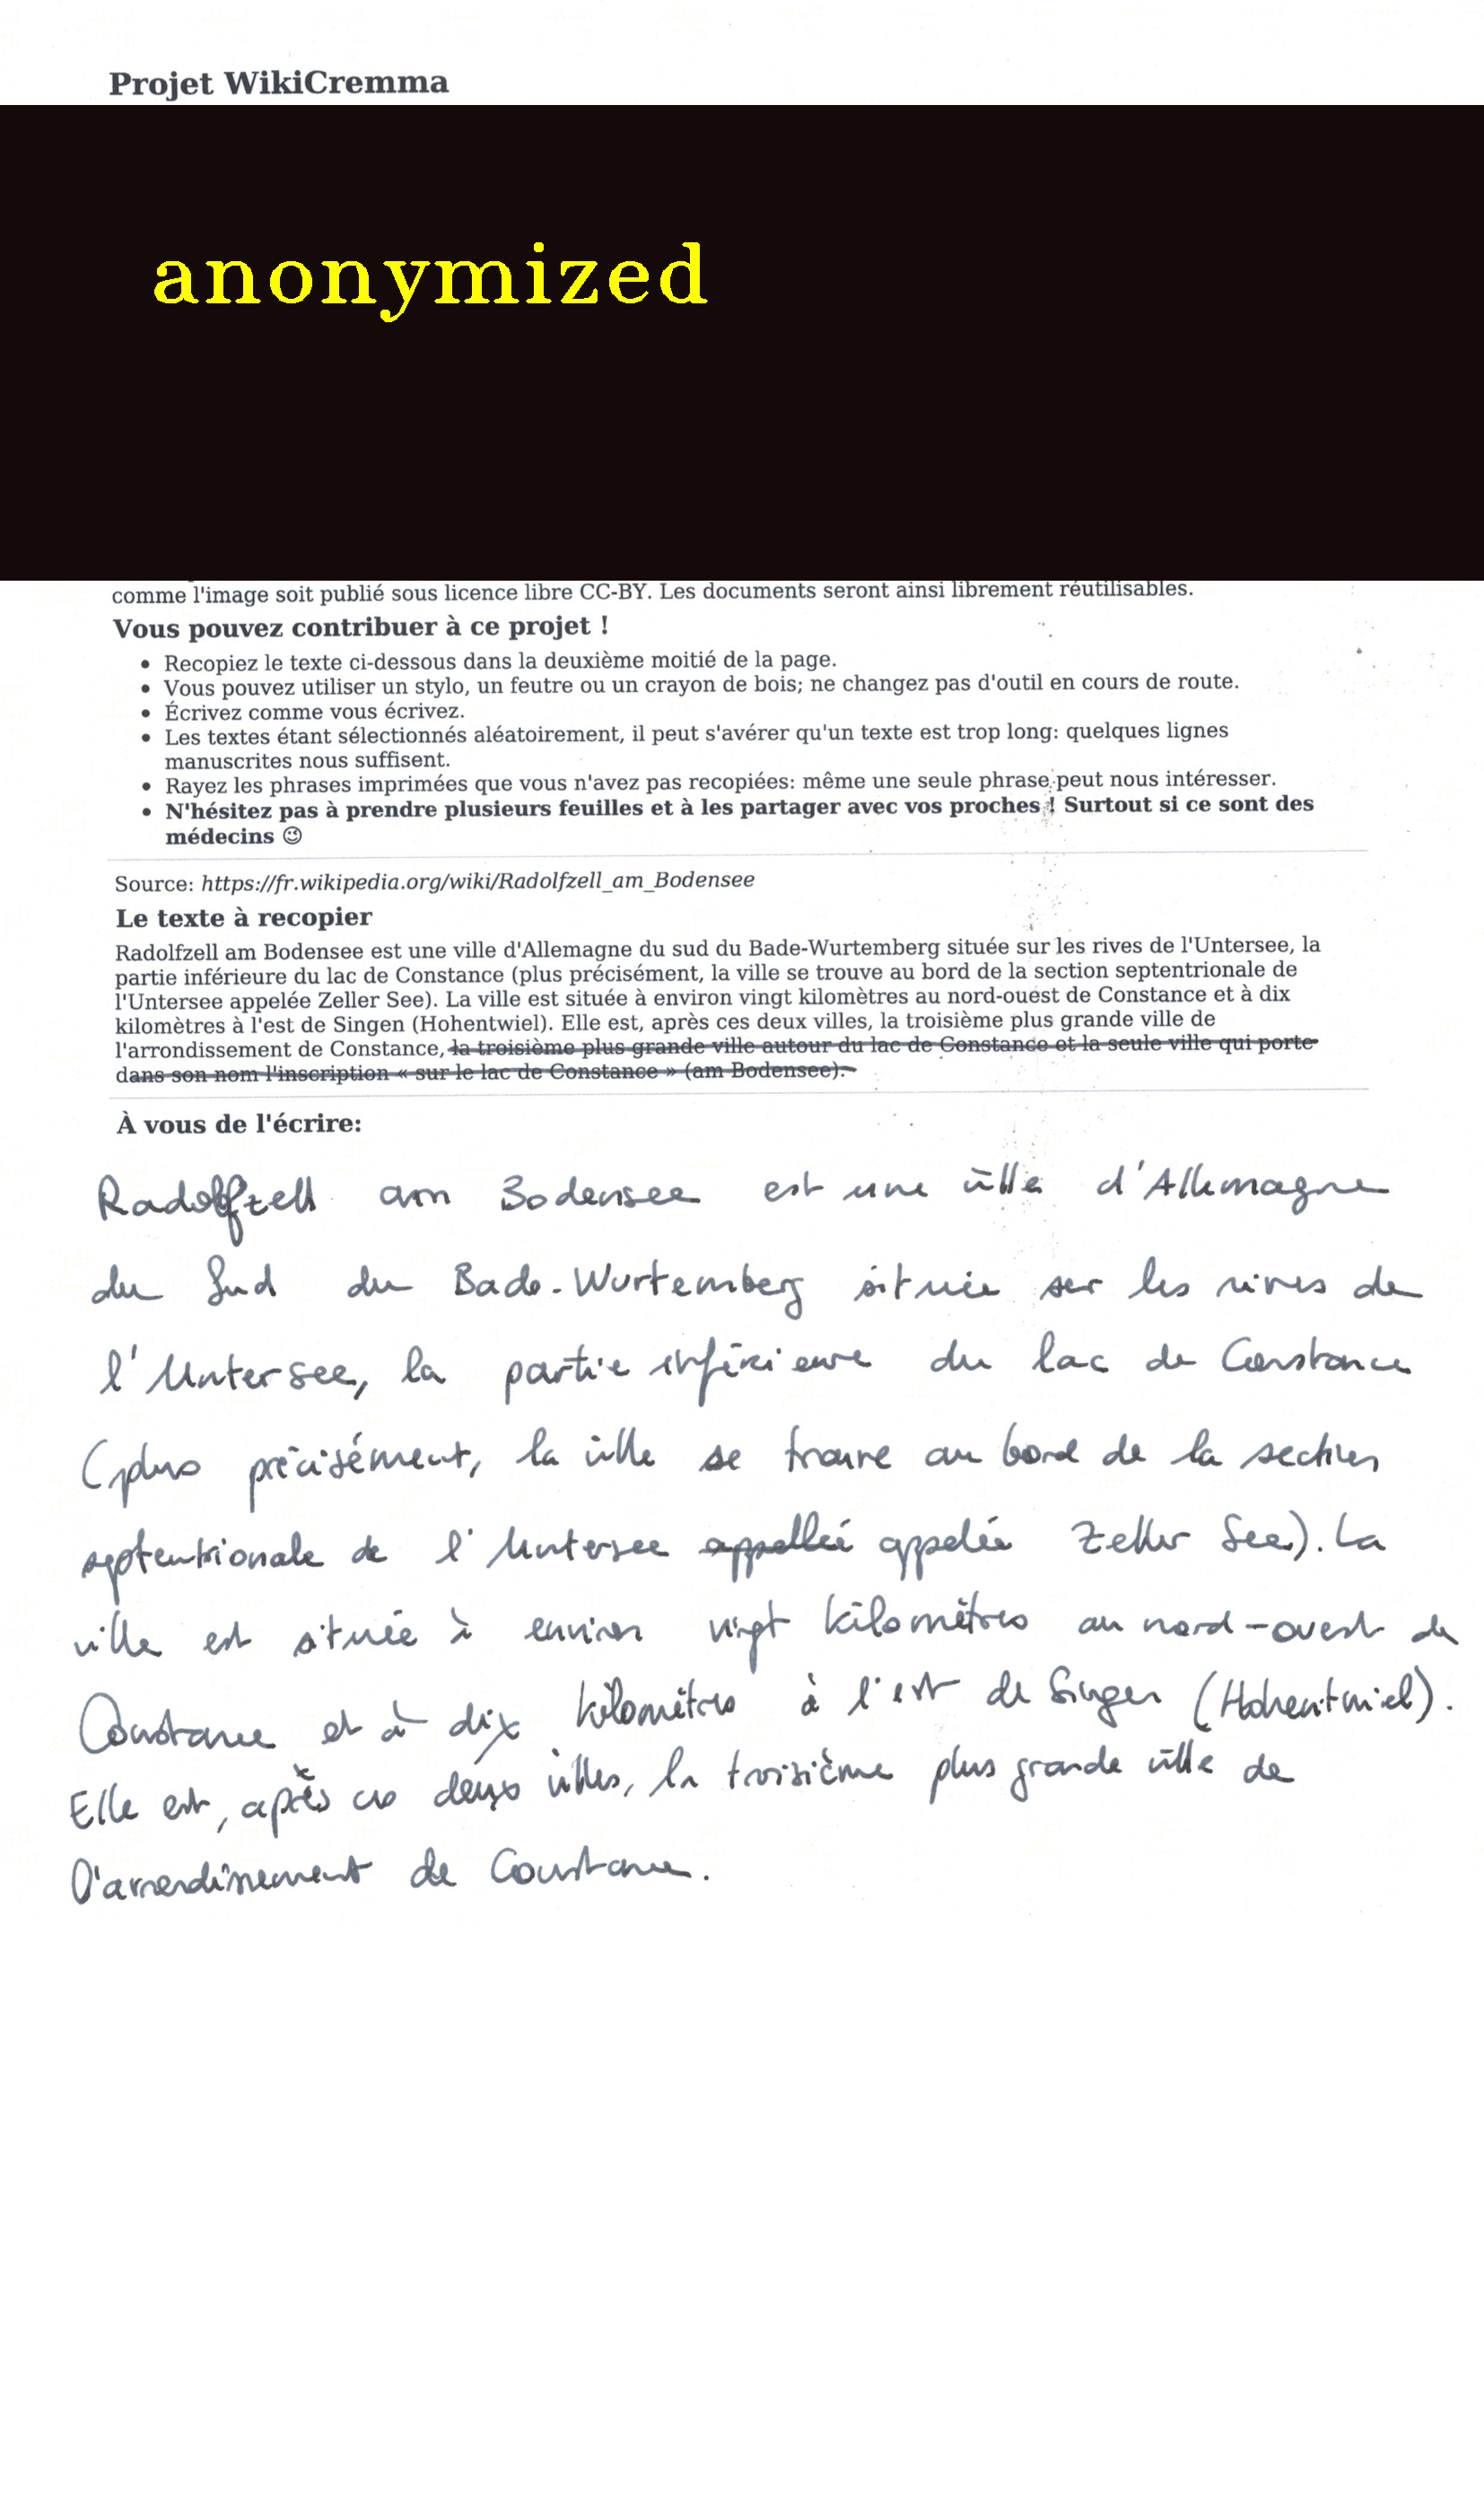 Projet WikiCremma
anonymized
comme l'image soit publié sous licence libre CC-BY. Les documents seront ainsi librement réutilisables.
Vous pouvez contribuer à ce projet !
• Recopiez le texte ci-dessous dans la deuxième moitié de la page.
• Vous pouvez utiliser un stylo, un feutre ou un crayon de bois; ne changez pas d'outil en cours de route.
• Écrivez comme vous écrivez.
• Les textes étant sélectionnés aléatoirement, il peut s'avérer qu'un texte est trop long: quelques lignes
manuscrites nous suffisent.
• Rayez les phrases imprimées que vous n'avez pas recopiées: même une seule phrase peut nous intéresser.
• N'hésitez pas à prendre plusieurs feuilles et à les partager avec vos proches ! Surtout si ce sont des
médecins 😉
Source: https://fr.wikipedia.org/wiki/Radolfzell_am_Bodensee
Le texte à recopier
Radolfzell am Bodensee est une ville d'Allemagne du sud du Bade-Wurtemberg située sur les rives de l'Untersee, la
partie inférieure du lac de Constance (plus précisément, la ville se trouve au bord de la section septentrionale de
l'Untersee appelée Zeller See). La ville est située à environ vingt kilomètres au nord-ouest de Constance et à dix
kilomètres à l'est de Singen (Hohentwiel). Elle est, après ces deux villes, la troisième plus grande ville de
l'arrondissement de Constance, la troisième plus grande ville autour du lac de Constance et la seule ville qui porte
dans son nom l'inscription « sur le lac de Constance » (am Bodensee).
À vous de l'écrire:
Radolfzell am Bodensee est une ville d'Allemagne
du Sud du Bade-Wurtemberg située sur les rives de
l'Untersee, la partie inférieure du lac de Constance
(plus précisément, la ville se trouve au bord de la section
septentrionale de l'Untersee appellée appelée Zeller See). La
ville est située à environ vingt kilomètres au nord-ouest de
Constance et à dix kilomètres à l'est de Singen (Hohentwiel).
Elle est, après ces deux villes, la troisième plus grande ville de
l'arrondissement de Constance.